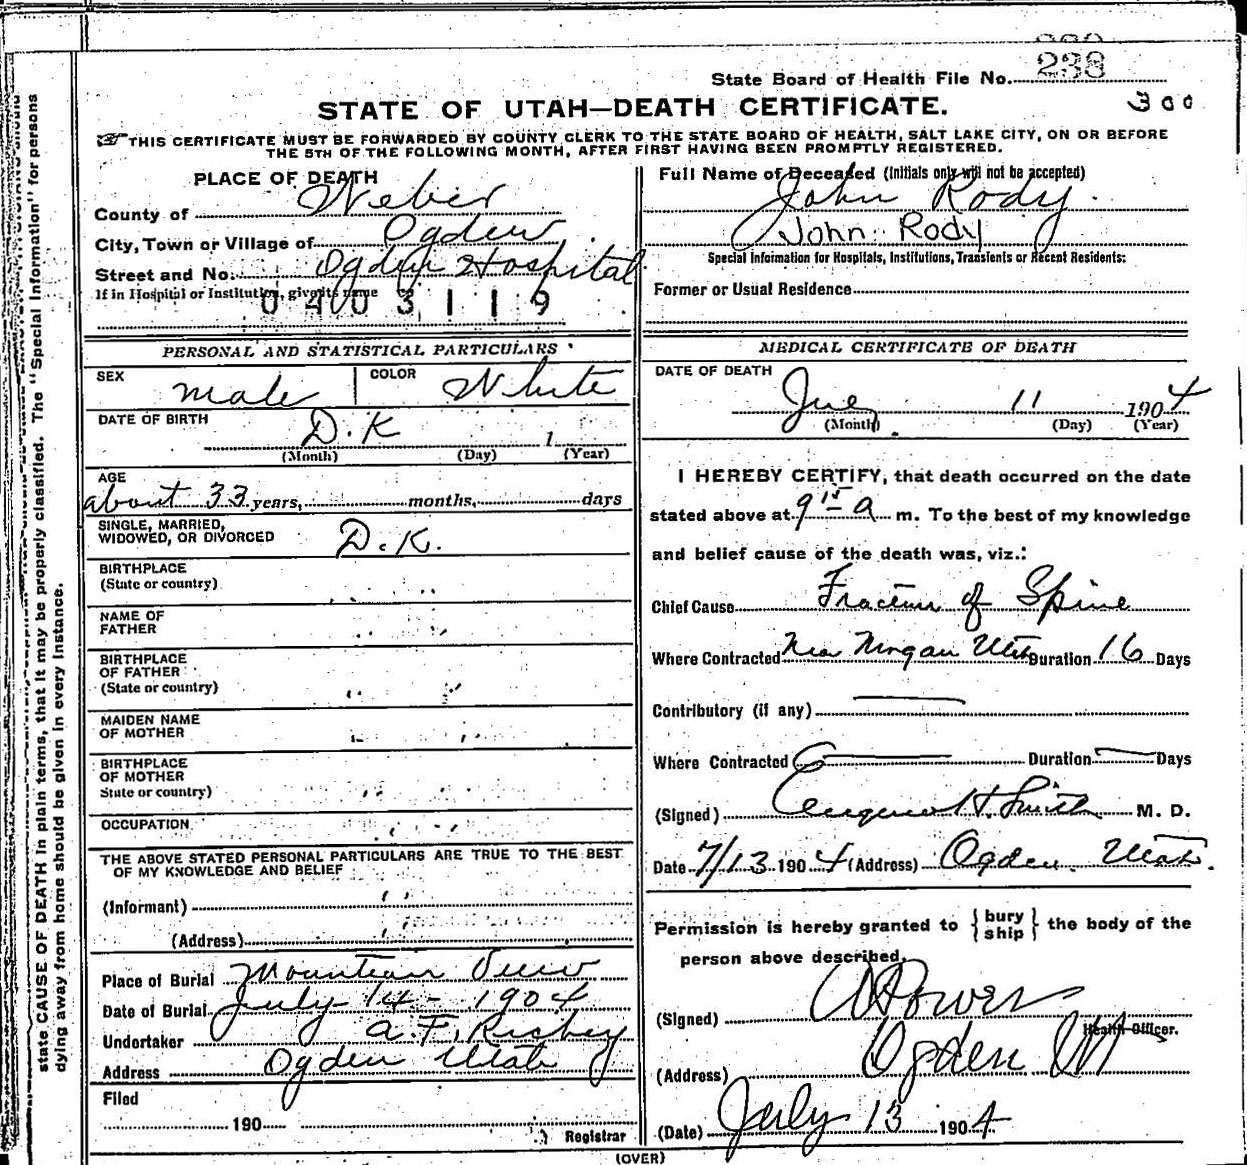 238
State Board of Health File No. 238
STATE OF UTAH—DEATH CERTIFICATE. 300
THIS CERTIFICATE MUST BE FORWARDED BY COUNTY CLERK TO THE STATE BOARD OF HEALTH, SALT LAKE CITY, ON OR BEFORE
THE 5TH OF THE FOLLOWING MONTH, AFTER FIRST HAVING BEEN PROMPTLY REGISTERED.
state CAUSE OF DEATH in plain terms, that it may be properly classified. The "Special Information" for persons
dying away from home should be given in every instance.
PLACE OF DEATH
County of Weber
City, Town or Village of Ogden
Street and No. Ogden Hospital
If in Hospital or Institution, give its name
0403119
PERSONAL AND STATISTICAL PARTICULARS
SEX male COLOR White
DATE OF BIRTH D.K 1
(Month) (Day) (Year)
AGE
about 33 years, months, days
SINGLE, MARRIED,
WIDOWED, OR DIVORCED D.K.
BIRTHPLACE
(State or country)
NAME OF
FATHER
BIRTHPLACE
OF FATHER
(State or country)
MAIDEN NAME
OF MOTHER
BIRTHPLACE
OF MOTHER
State or country)
OCCUPATION
THE ABOVE STATED PERSONAL PARTICULARS ARE TRUE TO THE BEST
OF MY KNOWLEDGE AND BELIEF
(Informant)
(Address)
Place of Burial Mountain View
Date of Burial July 14 - 1904
Undertaker A. F. Richey
Address Ogden Utah
Filed
190
Registrar
Full Name of Deceased (Initials only will not be accepted)
John Rody.
John Rody
Special Information for Hospitals, Institutions, Transients or Recent Residents:
Former or Usual Residence
MEDICAL CERTIFICATE OF DEATH
DATE OF DEATH
July 11 1904
(Month) (Day) (Year)
I HEREBY CERTIFY, that death occurred on the date
stated above at 9 15 a m. To the best of my knowledge
and belief cause of the death was, viz.:
Chief Cause Fracture of Spine
Where Contracted Near Morgan Utah Duration 16 Days
Contributory (if any)
Where Contracted Duration Days
(Signed) Eugene H. Smith M. D.
Date 7/13 1904 (Address) Ogden Utah.
Permission is hereby granted to { bury
ship } the body of the
person above described.
(Signed) Powers
Health Officer.
(Address) Ogden Ut
(Date) July 13 1904
(OVER)